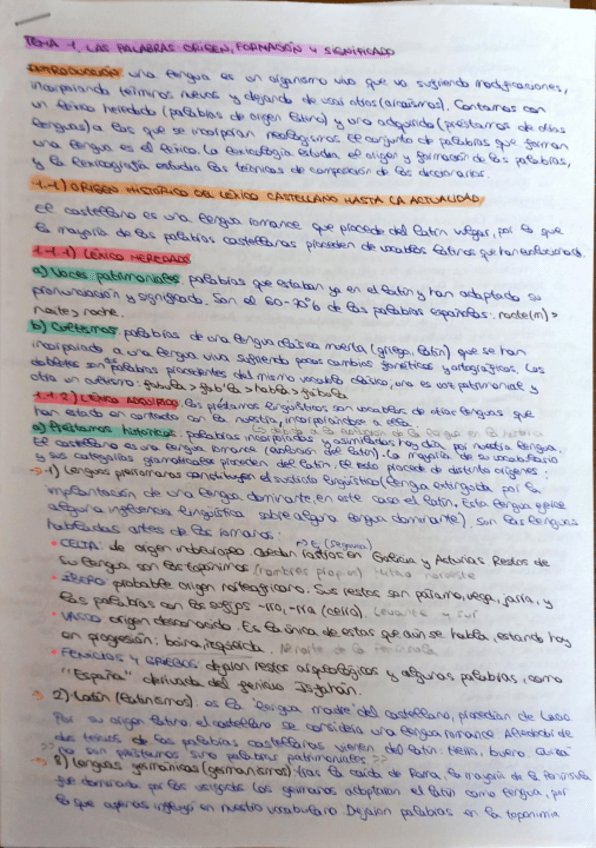 TEMA 1. LAS PALABRAS: ORIGEN, FORMACIÓN Y SIGNIFICADO
INTRODUCCIÓN una lengua es un organismo vivo que va sufriendo modificaciones,
incorporando términos nuevos y dejando de usar otros (arcaísmos). Contamos con
un léxico heredado (palabras de origen latino) y uno adquirido (préstamos de otras
lenguas) a los que se incorporan neologismos. El conjunto de palabras que forman
una lengua es el léxico. La lexicología estudia el origen y formación de las palabras,
y la lexicografía estudia las técnicas de composición de los diccionarios.
1.1) ORIGEN HISTÓRICO DEL LÉXICO CASTELLANO HASTA LA ACTUALIDAD
El castellano es una lengua romance que procede del latín vulgar, por lo que
la mayoría de las palabras castellanas proceden de vocablos latinos que han evolucionado.
1.1.1) LÉXICO HEREDADO
a) Voces patrimoniales: palabras que estaban ya en el latín y han adaptado su
pronunciación y significado. Son el 60-70% de las palabras españolas: nocte(m) >
noite > noche.
b) Cultismos: palabras de una lengua clásica muerta (griego, latín) que se han
incorporado a una lengua viva sufriendo pocos cambios fonéticos y ortográficos. Los
dobletes son las palabras procedentes del mismo vocablo clásico, una es voz patrimonial y
otra un cultismo: fabula > fab'la > habla > fábula
1.1.2) LÉXICO ADQUIRIDO los préstamos lingüísticos son vocablos de otras lenguas que
han estado en contacto con la nuestra, incorporándose a ella.
a) Préstamos históricos: palabras incorporadas y asimiladas hoy día por nuestra lengua.
El castellano es una lengua romance (evolución del latín). La mayoría de su vocabulario
y sus categorías gramaticales proceden del latín. El resto procede de distinto orígenes:
→ 1) Lenguas prerromanas constituyen el sustrato lingüístico (lengua extinguida por la
implantación de una lengua dominante, en este caso el latín. Esta lengua ejerce
alguna influencia lingüística sobre alguna lengua dominante). Son las lenguas
habladas antes de los romanos:
• CELTA: de origen indoeuropeo. Quedan rastros en Galicia y Asturias. Restos de
su lengua son los topónimos (nombres propios)
• ÍBERO: probable origen norteafricano. Sus restos son páramo, vega, jarra, y
las palabras con los sufijos -rro, -rra (cerro). Levante y sur
• VASCO: origen desconocido. Es la única de estas que aún se habla, estando hoy
en progresión: boina, izquierda. Norte de la Península
• FENICIOS Y GRIEGOS: dejaron restos arqueológicos y algunas palabras, como
"España" derivada del fenicio
→ 2) Latín (latinismos): es la "lengua madre" del castellano, procedían de Lacio.
Por su origen latino, el castellano se considera una lengua romance. Alrededor de
dos tercios de las palabras castellanas vienen del latín: bueno
no son préstamos sino palabras patrimoniales >>
→ 3) Lenguas germánicas (germanismos): tras la caída de Roma, la mayoría de la península
fue dominada por los visigodos. Los germanos adoptaron el latín como lengua, por
lo que apenas influyó en nuestro vocabulario. Dejaron palabras en la toponimia